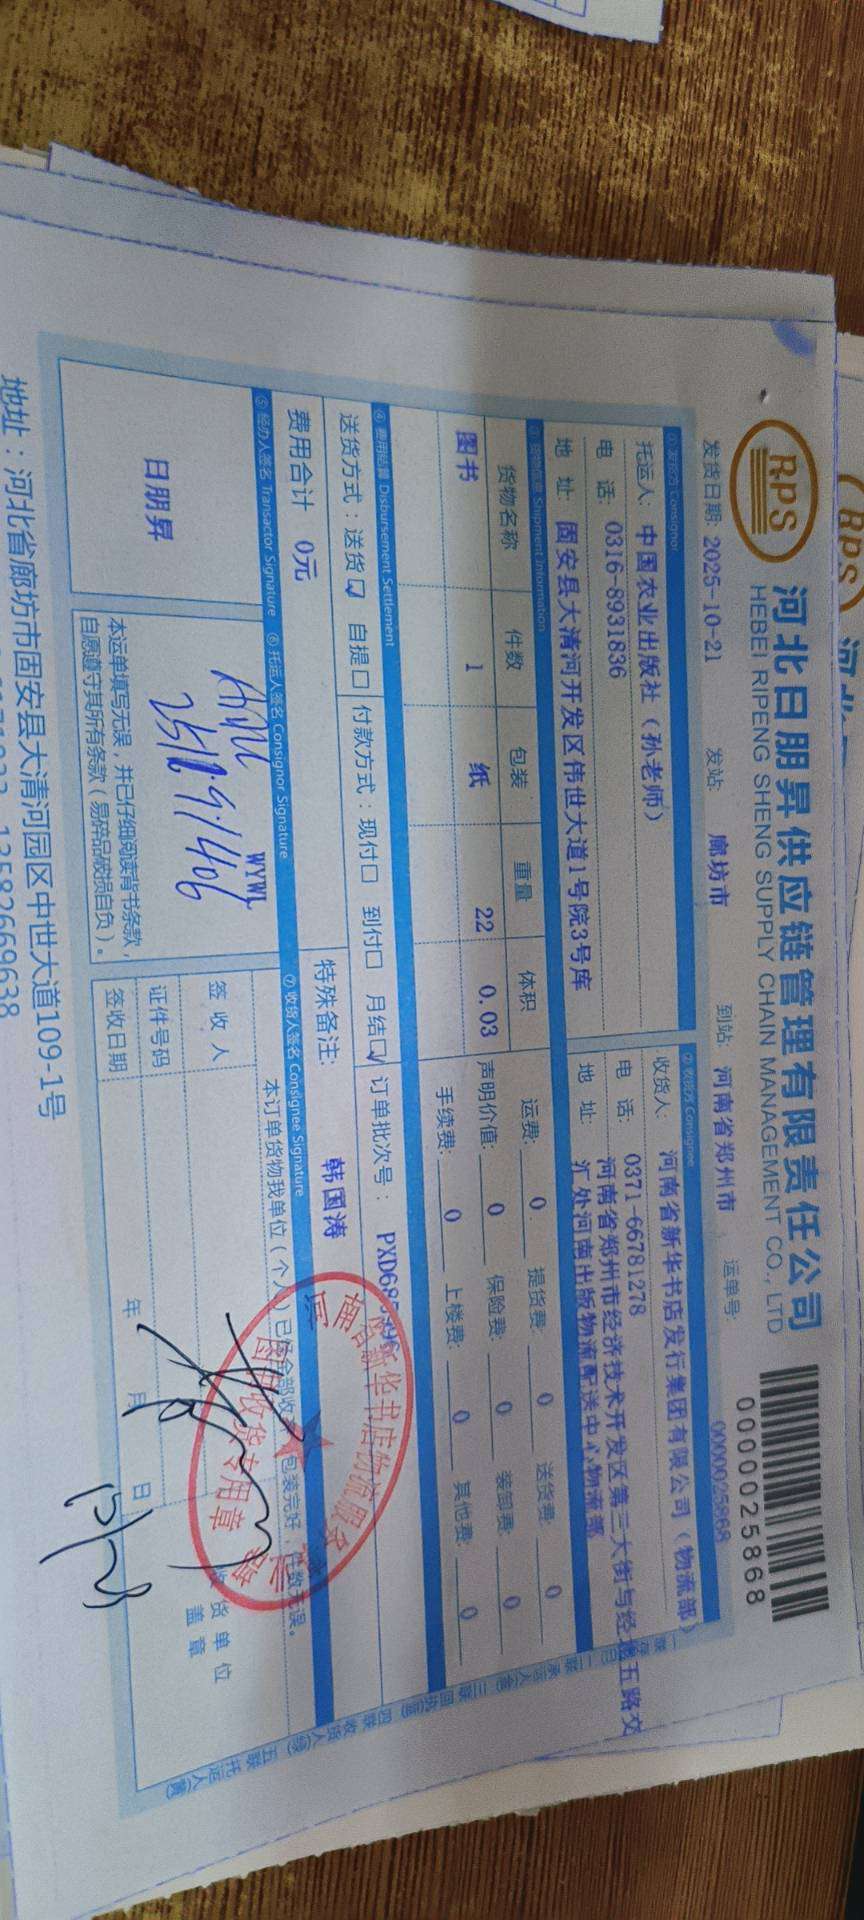 RPS
河北日朋昇供应链管理有限责任公司
HEBEI RIPENG SHENG SUPPLY CHAIN MANAGEMENT CO., LTD
0000025868
发货日期: 2025-10-21 发站: 廊坊市 到站: 河南省郑州市 运单号: 0000025868
① 发货方 Consignor
托运人: 中国农业出版社（孙老师）
电 话: 0316-8931836
地 址: 固安县大清河开发区伟世大道1号院3号库
② 收货方 Consignee
收货人: 河南省新华书店发行集团有限公司（物流部）
电 话: 0371-66781278
地 址: 河南省郑州市经济技术开发区第三大街与经北五路交
汇处河南出版物流配送中心物流部
③ 货物信息 Shipment Information
货物名称 件数 包装 重量 体积
图书 1 纸 22 0.03
运费: 0 提货费: 0 送货费: 0
声明价值: 0 保险费: 0 装卸费: 0
手续费: 0 上楼费: 0 其他费: 0
④ 费用结算 Disbursement Settlement
送货方式：送货☑ 自提□ 付款方式：现付□ 到付□ 月结☑ 订单批次号：
费用合计 0元 特殊备注: 韩国涛
⑤ 经办人签名 Transactor Signature ⑥ 托运人签名 Consignor Signature ⑦ 收货人签名 Consignee Signature
日朋昇
WYWL
本运单填写无误，并已仔细阅读背书条款，
自愿遵守其所有条款（易碎品破损自负）。
本订单货物我单位（个人）已经全部收 包装完好，件数无误。
签 收 人
证件号码
签收日期 年 月 日
收货单位
盖章
河南省新华书店物流服务
收货专用章
地址：河北省廊坊市固安县大清河园区中世大道109-1号
13582669638